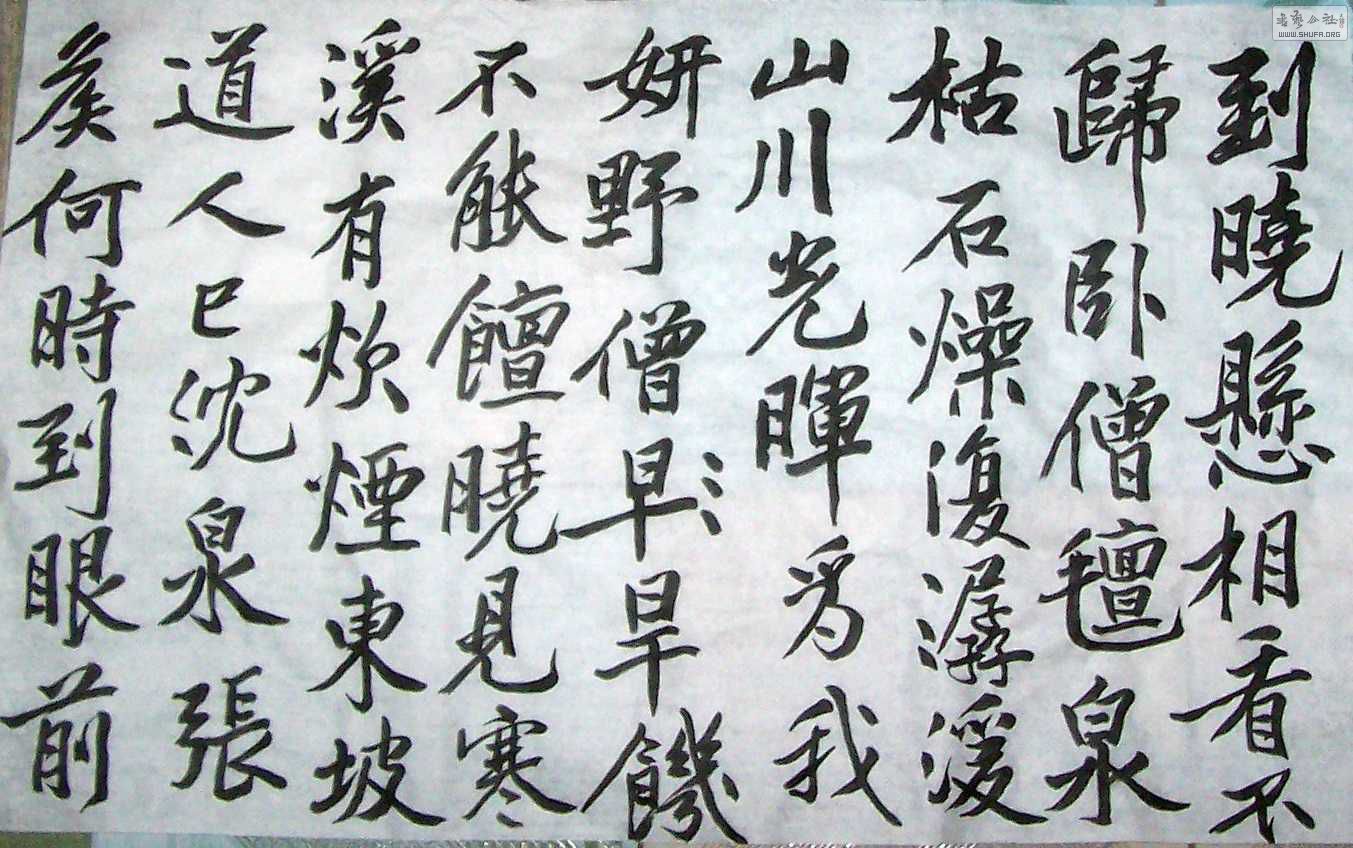 到曉懸相看不
歸卧僧氊泉
枯石燥復潺湲
山川光暉爲我
妍野僧早旱饑
不能饘曉見寒
溪有炊煙東坡
道人已沈泉張
矦何時到眼前
書藝公社
WWW.SHUFA.ORG